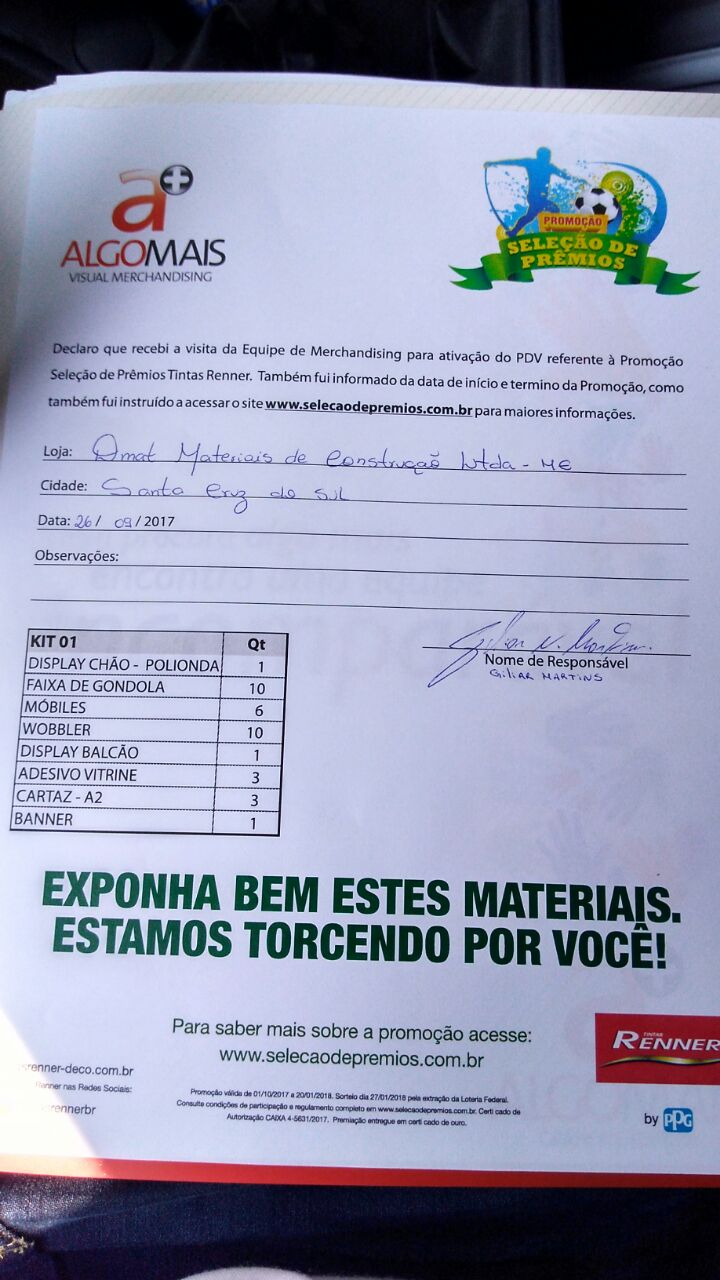 a+
ALGOMAIS
VISUAL MERCHANDISING
PROMOÇÃO
SELEÇÃO DE
PRÊMIOS
Declaro que recebi a visita da Equipe de Merchandising para ativação do PDV referente à Promoção
Seleção de Prêmios Tintas Renner. Também fui informado da data de início e termino da Promoção, como
também fui instruído a acessar o site www.selecaodepremios.com.br para maiores informações.
Loja: Qmat Materiais de Construção Ltda - ME
Cidade: Santa Cruz do Sul
Data: 26/ 09 / 2017
Observações:
KIT 01 Qt
DISPLAY CHÃO - POLIONDA 1
FAIXA DE GONDOLA 10
MÓBILES 6
WOBBLER 10
DISPLAY BALCÃO 1
ADESIVO VITRINE 3
CARTAZ - A2 3
BANNER 1
Nome de Responsável
GILIAR MARTINS
EXPONHA BEM ESTES MATERIAIS.
ESTAMOS TORCENDO POR VOCÊ!
Para saber mais sobre a promoção acesse:
www.selecaodepremios.com.br
TINTAS
RENNER
by PPG
renner-deco.com.br
Renner nas Redes Sociais:
rennerbr
Promoção válida de 01/10/2017 a 20/01/2018. Sorteio dia 27/01/2018 pela extração da Loteria Federal.
Consulte condições de participação e regulamento completo em www.selecaodepremios.com.br. Certi cado de
Autorização CAIXA 4-5631/2017. Premiação entregue em certi cado de ouro.